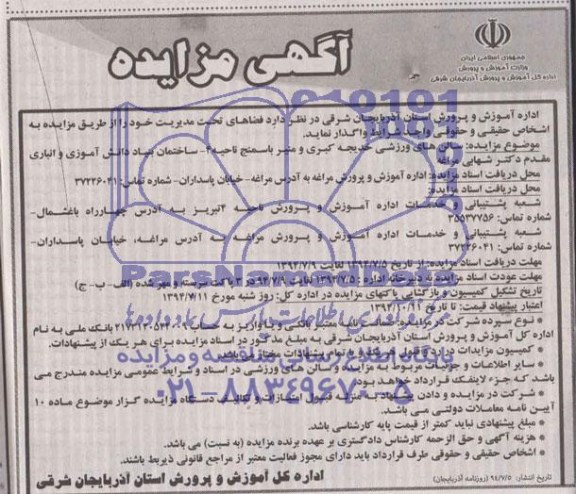 جمهوری اسلامی ایران
وزارت آموزش و پرورش
اداره کل آموزش و پرورش آذربایجان شرقی
آگهی مزایده
اداره آموزش و پرورش استان آذربایجان شرقی در نظر دارد فضاهای تحت مدیریت خود را از طریق مزایده به
اشخاص حقیقی و حقوقی واجد شرایط واگذار نماید.
موضوع مزایده: سالن های ورزشی خدیجه کبری و منیر باسمنج ناحیه ۲- ساختمان بنیاد دانش آموزی و انباری
مقدم دکتر شهابی مراغه
محل دریافت اسناد مزایده: اداره آموزش و پرورش مراغه به آدرس مراغه- خیابان پاسداران- شماره تماس: ۳۷۲۲۶۰۴۱
محل دریافت اسناد مزایده:
شعبه پشتیبانی و خدمات اداره آموزش و پرورش ناحیه ۲تبریز به آدرس چهارراه باغشمال-
شماره تماس: ۳۵۵۳۷۷۵۶
شعبه پشتیبانی و خدمات اداره آموزش و پرورش مراغه به آدرس مراغه، خیابان پاسداران-
شماره تماس: ۳۷۲۲۶۰۴۱
مهلت دریافت اسناد مزایده: از تاریخ ۱۳۹۴/۷/۵ لغایت ۱۳۹۴/۷/۹
مهلت عودت اسناد مزایده به دبیرخانه اداره : ۱۳۹۴/۷/۵ لغایت ۹۴/۷/۹ در ۳ پاکت سربسته و مهر شده (الف - ب - ج)
تاریخ تشکیل کمیسیون و بازگشایی پاکتهای مزایده در اداره کل: روز شنبه مورخ ۱۳۹۴/۷/۱۱
اعتبار پیشنهاد قیمت: تا تاریخ
نوع سپرده شرکت در مزایده: ضمانتنامه معتبر بانکی و یا واریز به حساب بانک ملی به نام
اداره کل آموزش و پرورش استان آذربایجان شرقی به مبلغ مذکور در اسناد مزایده برای هر یک از پیشنهادات.
کمیسیون مزایدات در رد یا قبول هر یک و یا تمام پیشنهادات مختار می باشد.
سایر اطلاعات و جزئیات مربوط به مزایده و سالن های ورزشی در اسناد و شرایط عمومی مزایده مندرج می
باشد که جزء لاینفک قرارداد خواهد بود.
شرکت در مزایده و دادن پیشنهاد به منزله قبول امتیازات و تکالیف دستگاه مزایده گزار موضوع ماده ۱۰
آیین نامه معاملات دولتی می باشد.
مبلغ پیشنهادی نباید کمتر از قیمت پایه کارشناسی باشد.
هزینه آگهی و حق الزحمه کارشناس دادگستری بر عهده برنده مزایده (به نسبت) می باشد.
اشخاص حقیقی و حقوقی طرف قرارداد باید دارای مجوز فعالیت معتبر از مراجع قانونی ذیربط باشند.
اداره کل آموزش و پرورش استان آذربایجان شرقی
تاریخ انتشار: ۹۴/۷/۵ (روزنامه آذربایجان)
ParsNamadData
۰۲۱-۸۸۳۴۹۶۷۰-۵